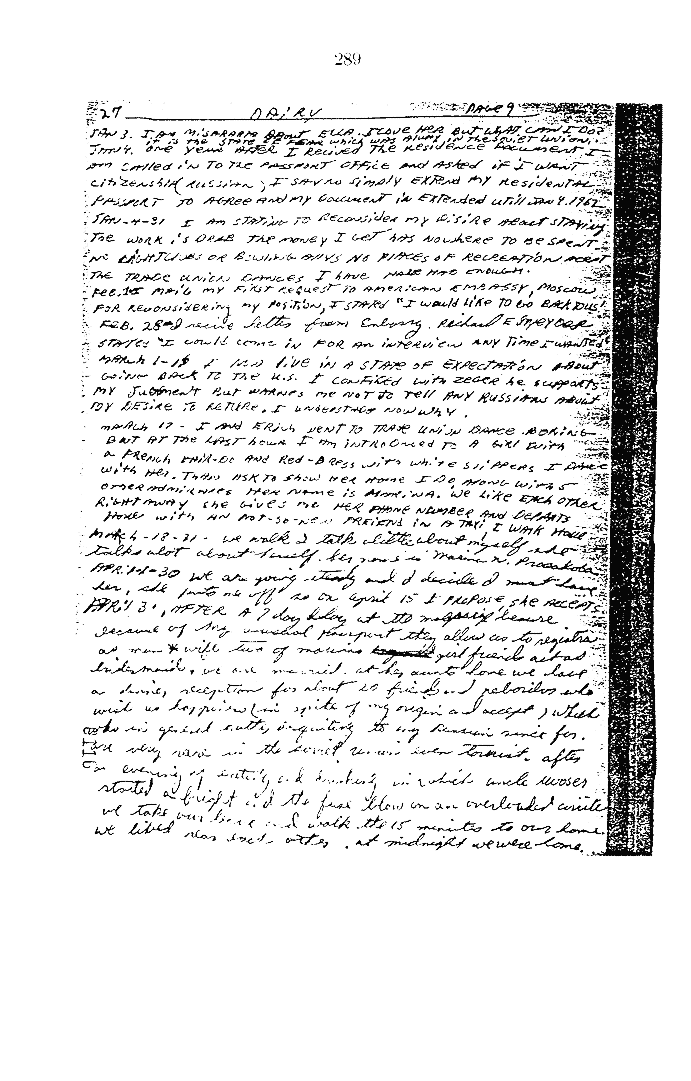 289
27 DAIRY PAGE 9
JAN 3. I AM MISARABLE ABOUT ELLA. I LOVE HER BUT WHAT CAN I DO?
it is the state of fear which was alway in the Soviet Union.
JAN 4. ONE YEAR AFTER I RECIVED THE RESIDENCE DOCUMENT I
AM CALLED IN TO THE PASSPORT OFFICE AND ASKED IF I WANT
CITIZENSHIP (RUSSIAN) I SAY NO SIMPLY EXTEND MY RESIDENTAL
PASSPORT TO AGREE AND MY DOCUMENT IS EXTENDED UTILL JAN 4. 1962
JAN-4-31 I AM STATING TO RECONSIDER MY DISIRE ABOUT STAYING
THE WORK IS DRAB THE MONEY I GET HAS NOWHERE TO BE SPENT.
NO NIGHTCLUBS OR BOWLING ALLYS NO PLACES OF RECREATION ACEPT
THE TRADE UNION DANCES I HAVE HAD ENOUGH.
FEB. 1ST MAKE MY FIRST REQUEST TO AMERICAN EMBASSY, MOSCOW
FOR RECONSIDERING MY POSITION, I STATED "I WOULD LIKE TO GO BACK TO U.S."
FEB. 28th I recive letter from Embassy. Richard E SNYDER
STATES "I COULD COME IN FOR AN INTERVIEW ANY TIME I WANTED"
MARCH 1-16 I NOW LIVE IN A STATE OF EXPECTATION ABOUT
GOING BACK TO THE U.S. I CONFIDED WITH ZEGER HE SUPPORTS
MY JUDGMENT BUT WARNES ME NOT TO TELL ANY RUSSIANS ABOUT
MY DESIRE TO RETURE. I UNDERSTADE NOW WHY.
MARCH 17 - I AND ERICH WENT TO TRADE UNION DANCE. BORING
BUT AT THE LAST HOUR I AM INTRODUCED TO A GIRL WITH
A FRENCH HAIR-DO AND RED-DRESS WITH WHITE SLIPPERS I DANCE
WITH HER. THAN ASK TO SHOW HER HOME I DO, ALONG WITH 5
OTHER ADMIRARES HER NAME IS MARINA. WE LIKE EACH OTHER
RIGHT AWAY SHE GIVES ME HER PHONE NUMBER AND DEPARTS
HOME WITH AN NOT-SO-NEW FREIEND IN A TAXI I WALK HOME.
March-18-31- we walk I talk a little about myself she
talks alot about herself. her name is Marina N. Prosakoba
APRIL 1-30 we are going steady and I decide I must have
her, she puts me off so on april 15 I PROPOSE, she ACCEPTS.
APRIL 31, AFTER A 7 day delay at the marraige beaure
because of my unusual passport they allow us to registra
as man & wife two of marinas girl friends act as
bridesmaids. we are married. at her aunts home we have
a dinner reception for about 20 friends and neboribos who
wish us happiness (in spite of my origin and accept) which
was in general rather disquiting to any Russian since for.
are very rare in the soviet union even tourist. after
an evening of eating and drinking in which uncle wooser
started a fright and the fuse blow on an overloaded circite
we take our leave and walk the 15 minutes to our home.
we lived near each other, at midnight we were home.